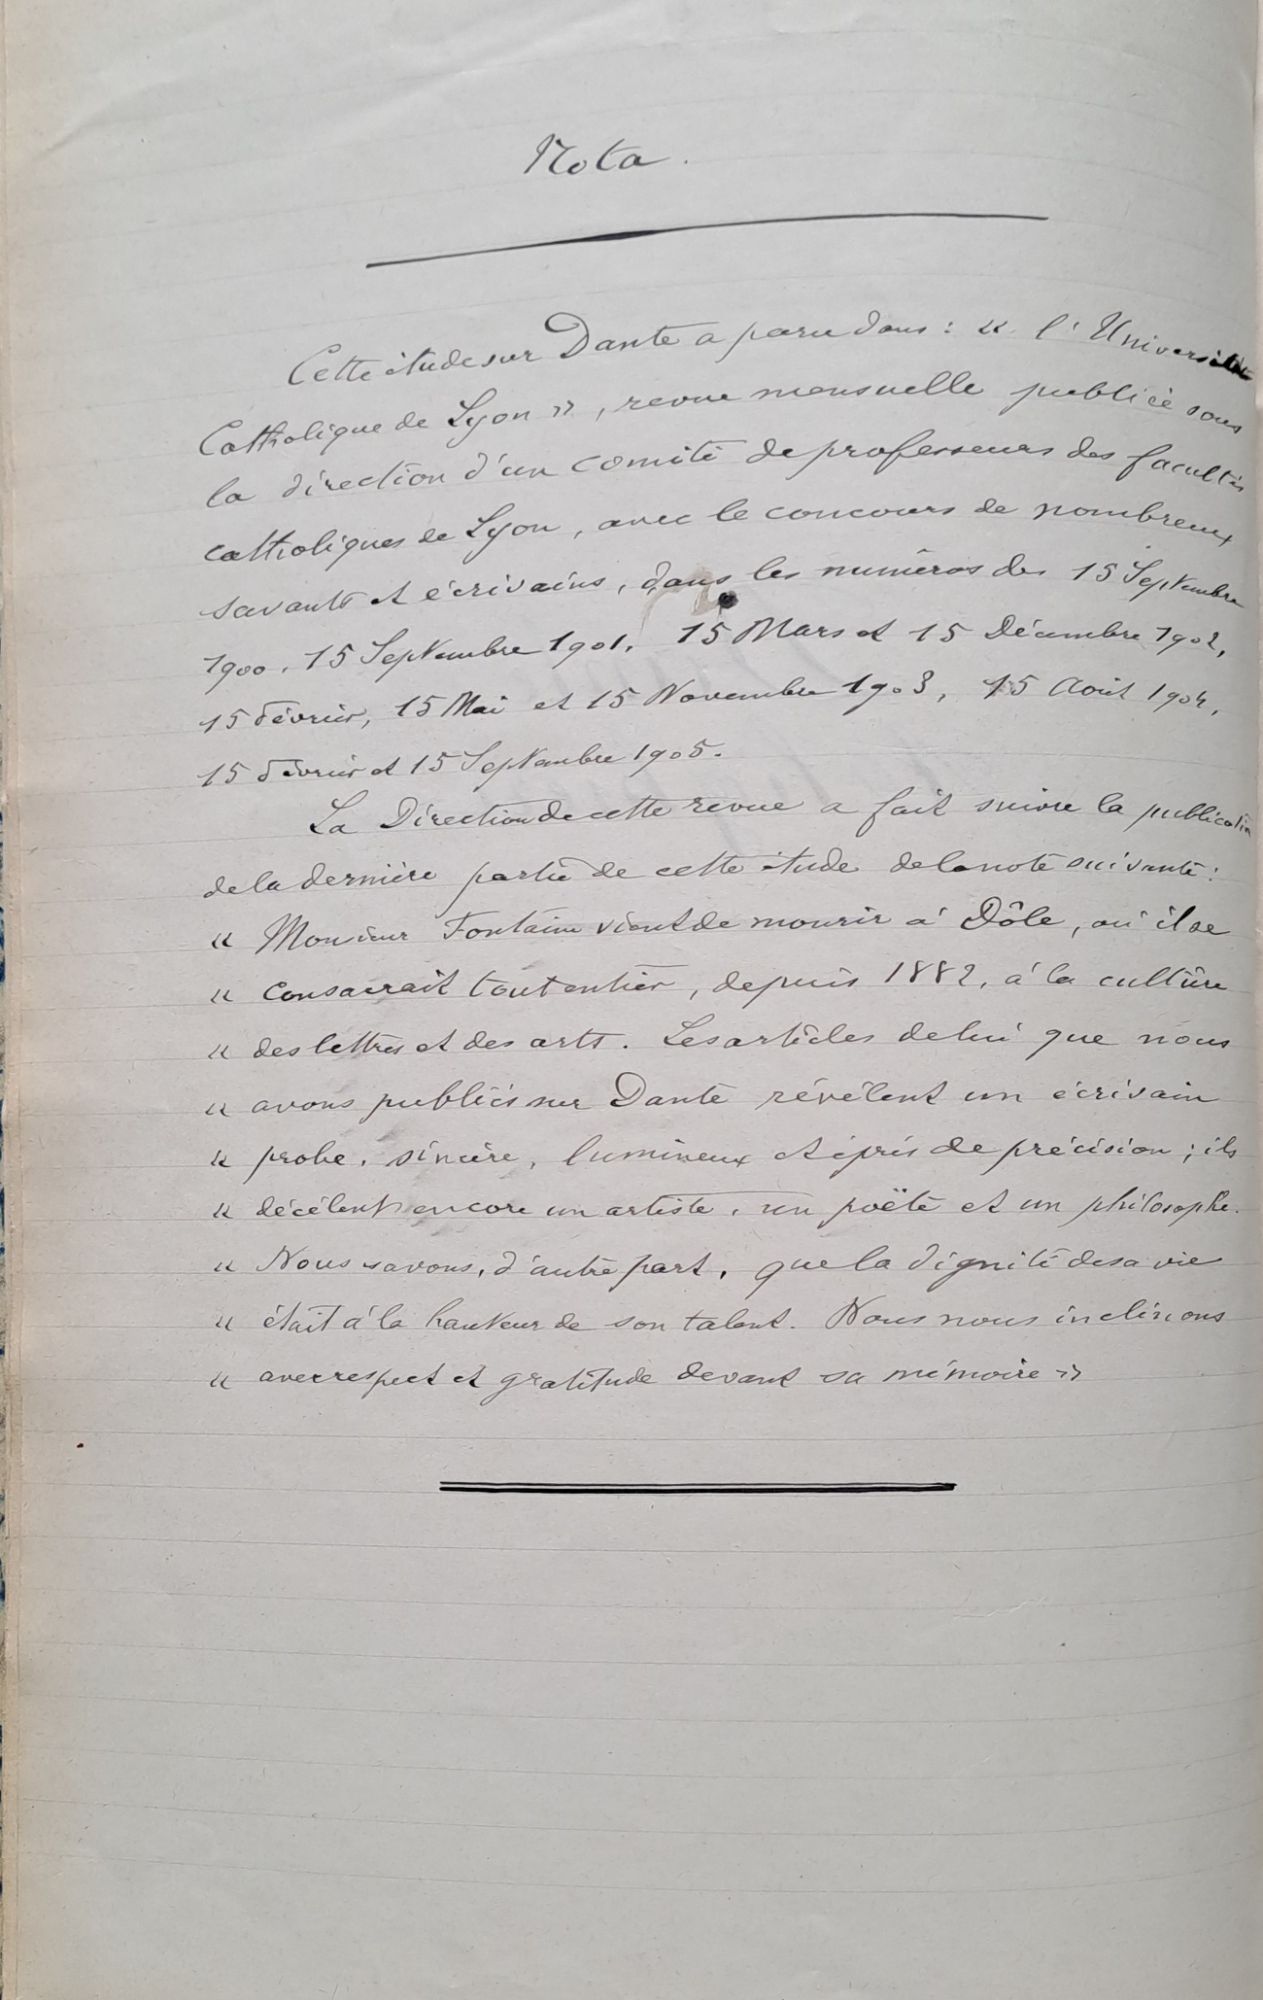 Nota.
Cette étude sur Dante a paru dans : « l'Université
Catholique de Lyon », revue mensuelle publiée sous
la direction d'un comité de professeurs des facultés
catholiques de Lyon, avec le concours de nombreux
savants et écrivains, dans les numéros des 15 Septembre
1900, 15 Septembre 1901, 15 Mars et 15 Décembre 1902,
15 Février, 15 Mai et 15 Novembre 1903, 15 Août 1904,
15 Février et 15 Septembre 1905.
La Direction de cette revue a fait suivre la publication
de la dernière partie de cette étude de la note suivante :
« Monsieur Fontaine vient de mourir à Dôle, où il se
« consacrait tout entier, depuis 1882, à la culture
« des lettres et des arts. Les articles de lui que nous
« avons publiés sur Dante révèlent un écrivain
« probe, sincère, lumineux et épris de précision ; ils
« décèlent encore un artiste, un poëte et un philosophe.
« Nous savons, d'autre part, que la dignité de sa vie
« était à la hauteur de son talent. Nous nous inclinons
« avec respect et gratitude devant sa mémoire »